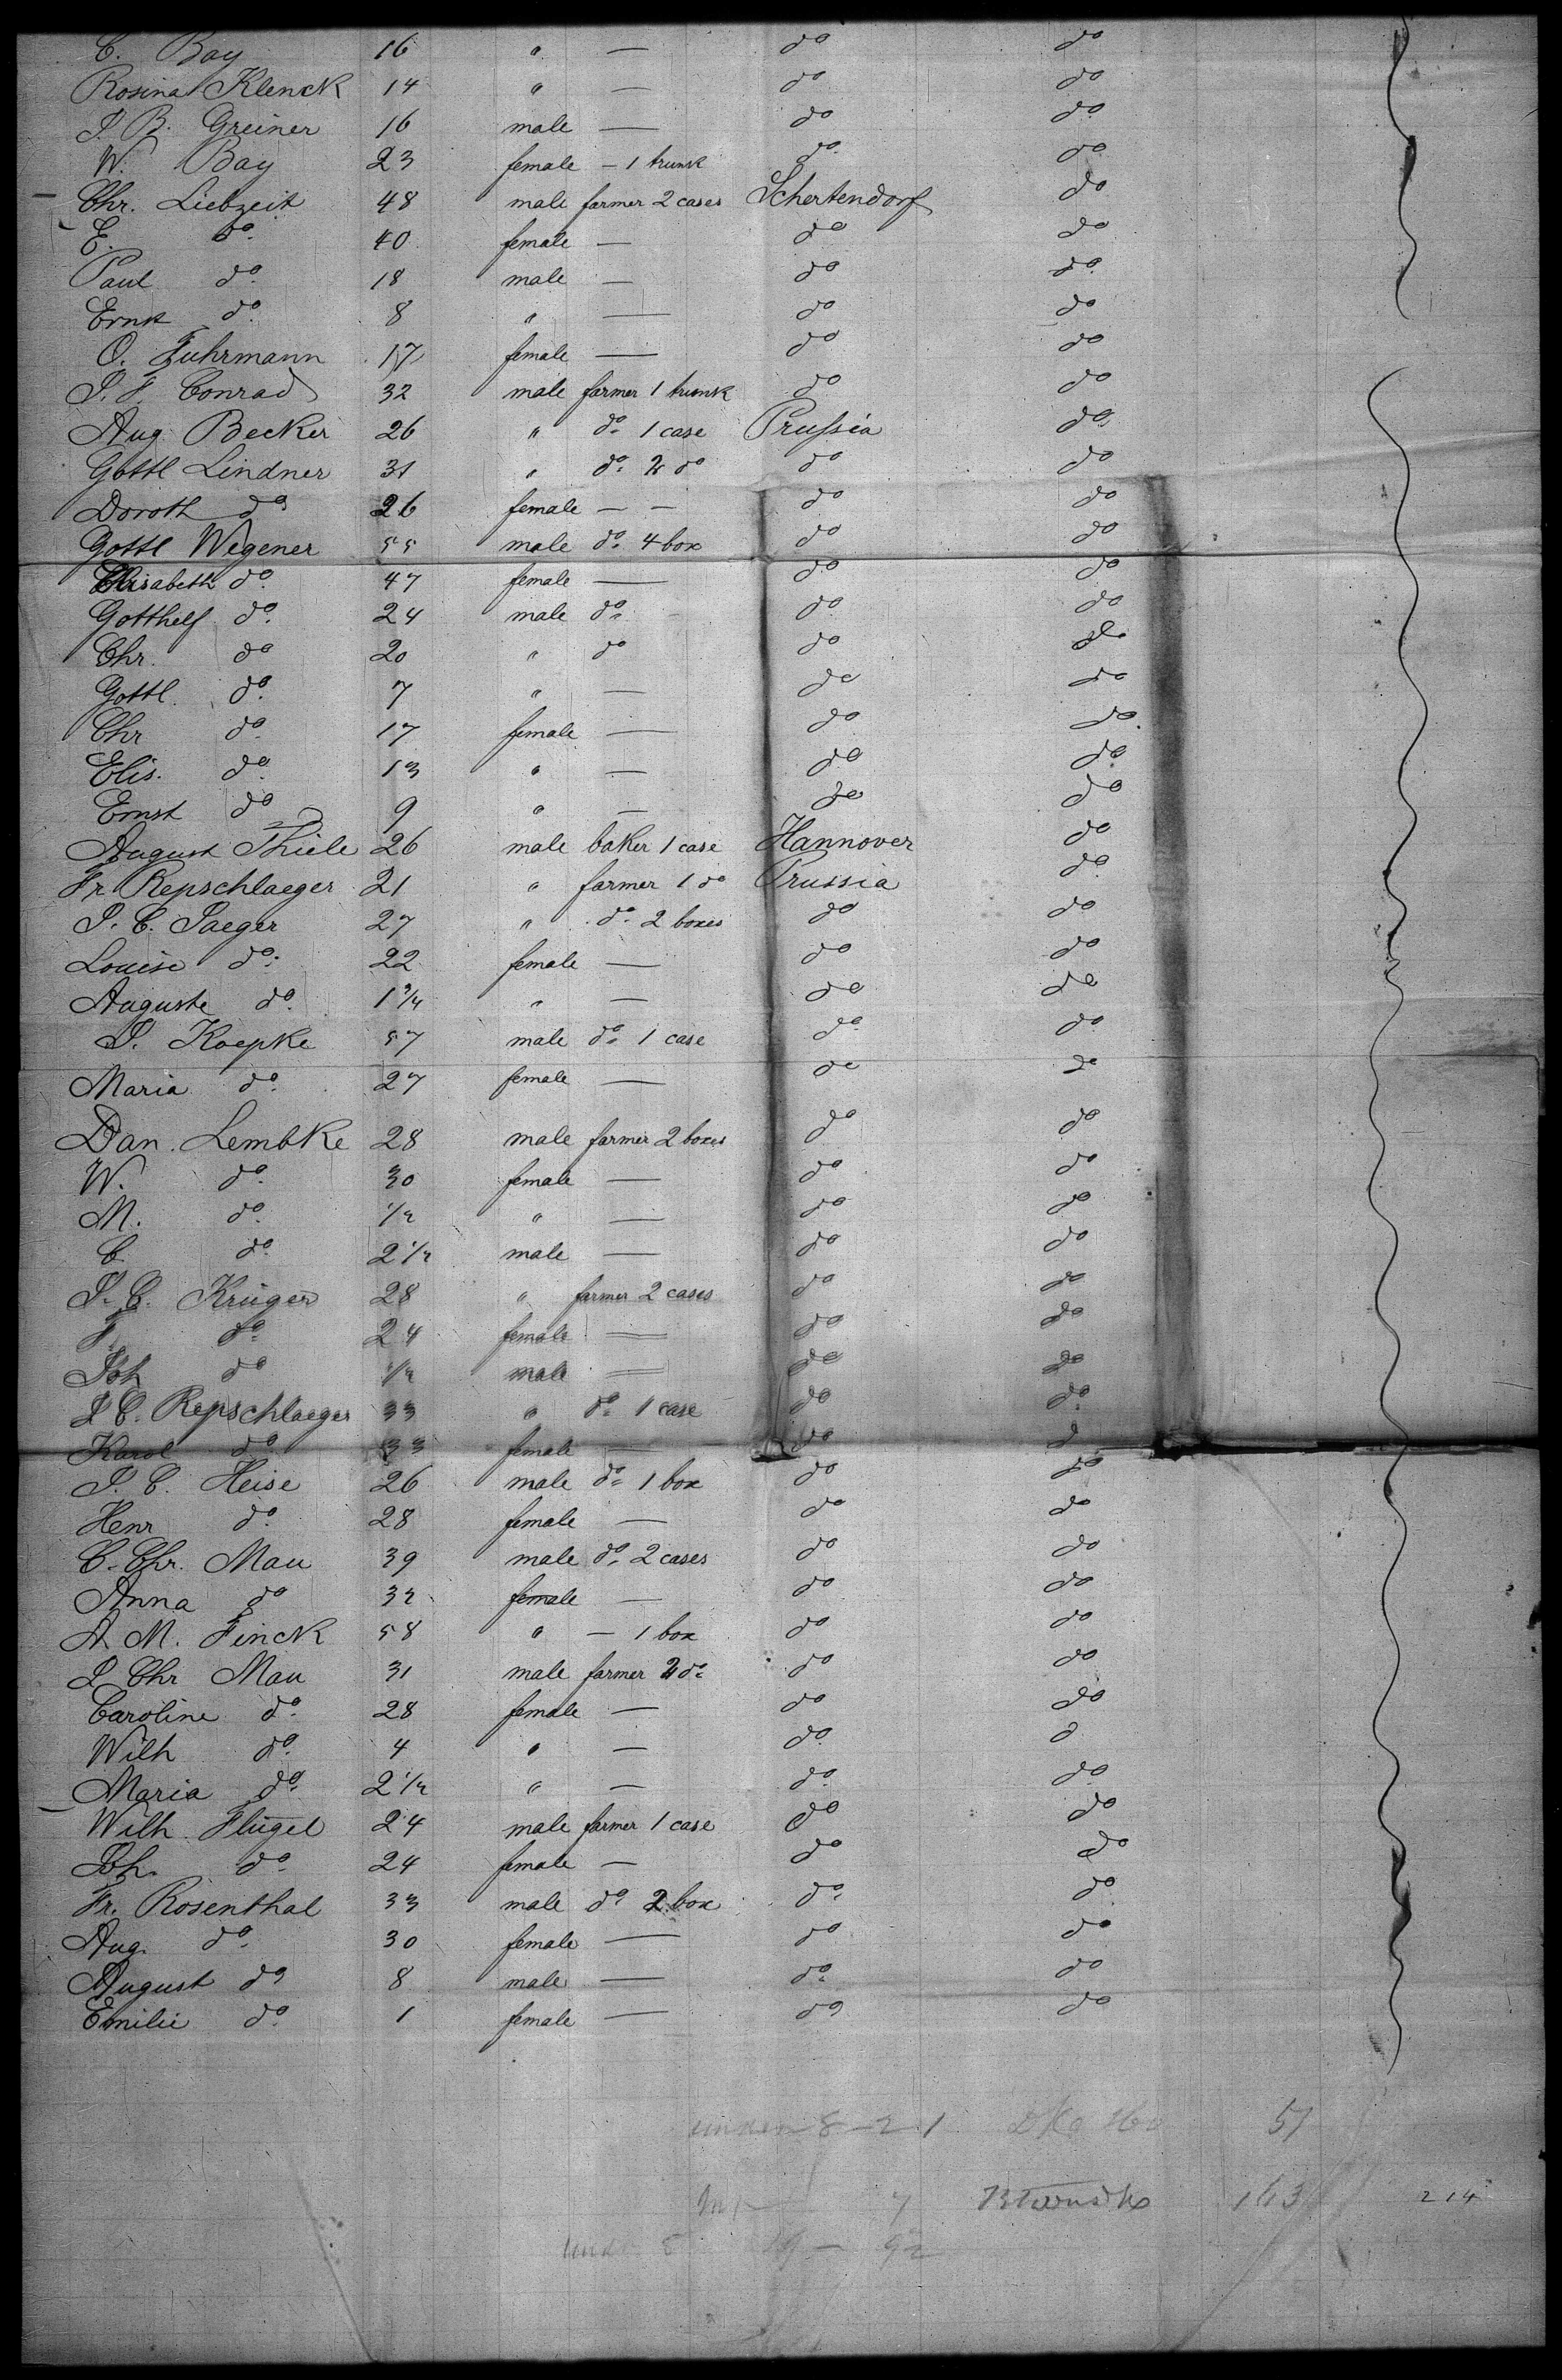 C. Bay 16 " — do do
Rosina Klenck 14 " — do do
J. B. Greiner 16 male — do do
W. Bay 23 female — 1 trunk do do
Chr. Liebzeit 48 male farmer 2 cases Schertendorf do
E. do 40 female — do do
Paul do 18 male — do do
Ernst do 8 " — do do
O. Fuhrmann 17 female — do do
J. F. Conrad 32 male farmer 1 trunk do do
Aug Becker 26 " do 1 case Prussia do
Gottl Lindner 31 " do 2 do do do
Doroth do 26 female — — do do
Gottl Wegener 55 male do 4 box do do
Elisabeth do 47 female — do do
Gotthelf do 24 male do do do
Chr. do 20 " do do do
Gottl. do 7 " — do do
Chr do 17 female — do do
Elis. do 13 " — do do
Ernst do 9 " — do do
August Thiele 26 male baker 1 case Hannover do
Fr. Repschlaeger 21 " farmer 1 do Prussia do
J. C. Jaeger 27 " do 2 boxes do do
Louise do 22 female — do do
Auguste do 1 3/4 " — do do
J. Koepke 57 male do 1 case do do
Maria do 27 female — do do
Dan. Lembke 28 male farmer 2 boxes do do
W. do 30 female — do do
M. do 1/2 " — do do
C do 2 1/2 male — do do
J. C. Krüger 28 " farmer 2 cases do do
F. do 24 female — do do
Joh do 1/2 male — do do
J C. Repschlaeger 33 " do 1 case do do
Karol do 33 female — do d
J. C. Heise 26 male do 1 box do do
Henr do 28 female — do do
C. Chr. Mau 39 male do 2 cases do do
Anna do 32 female — do do
A. M. Finck 58 " — 1 box do do
J Chr Mau 31 male farmer 2 do do do
Caroline do 28 female — do do
Wilh do 4 " — do d
Maria do 2 1/2 " — do do
Wilh. Flügel 24 male farmer 1 case do do
Joh. do 24 female — do do
Fr. Rosenthal 33 male do 2 box do do
Aug. do 30 female — do do
August do 8 male — do do
Emilie do 1 female — do do
under 8 — 21 51
7 163 214
under 8 92